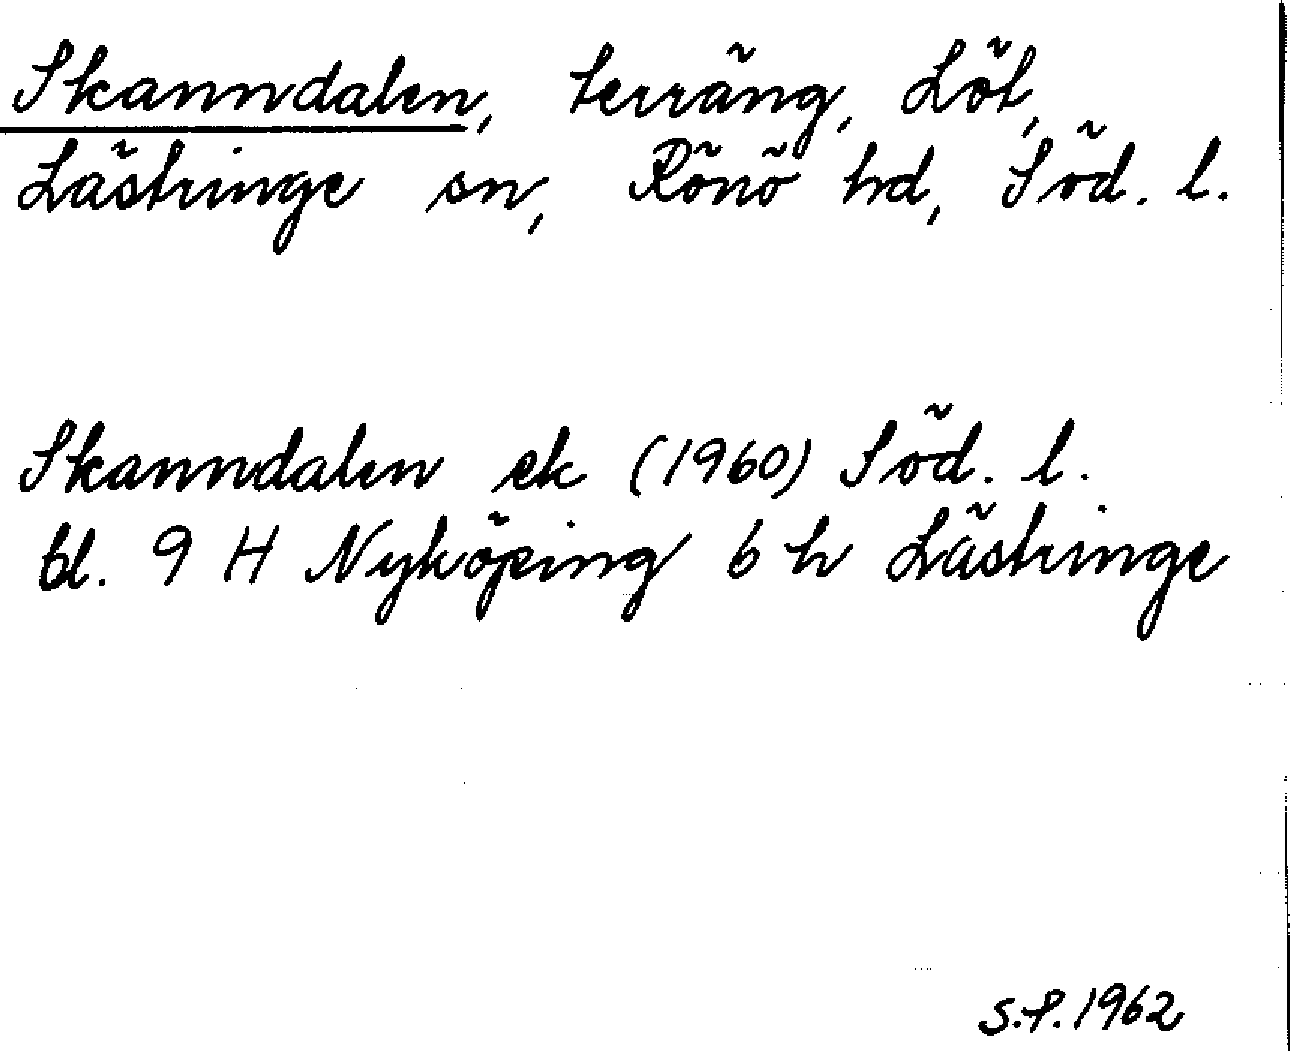 Skanndalen, terräng, Löt,
Lästringe sn, Rönö hd, Söd. l.
Skanndalen ek (1960) Söd. l.
bl. 9 H Nyköping 6 h Lästringe
S.P. 1962